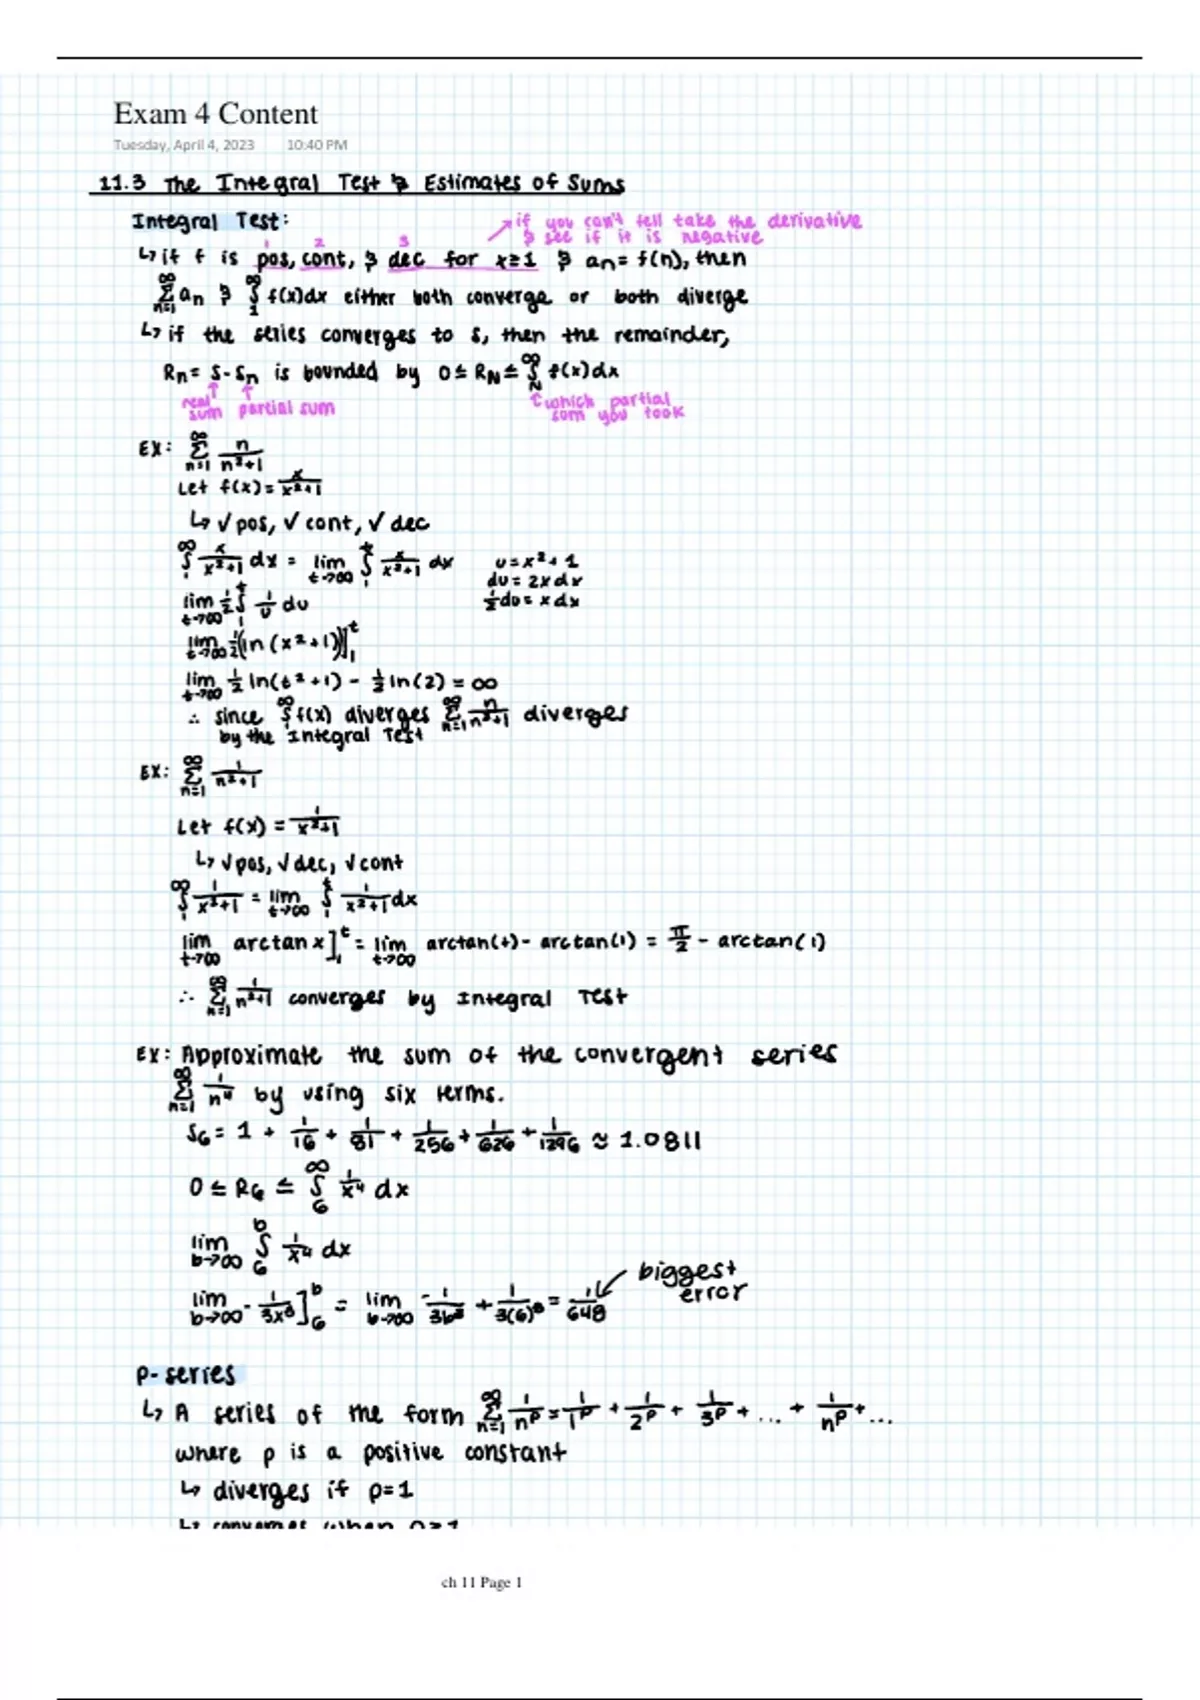 Exam 4 Content
Tuesday, April 4, 2023 10:40 PM
11.3 The Integral Test & Estimates of Sums
Integral Test:
→ if you can't tell take the derivative
& see if it is negative
1 2 3
↳ if f is pos, cont, & dec for x≥1 & aₙ = f(n), then
∞Σn=1 aₙ & ∞∫1 f(x)dx either both converge or both diverge
↳ if the series converges to S, then the remainder,
Rₙ = S - Sₙ is bounded by 0 ≤ R_N ≤ ∞∫N f(x)dx
real sum ↑ partial sum ↑
↑ which partial
som you took
EX: ∞Σn=1 n/(n²+1)
Let f(x) = x/(x²+1)
↳ √ pos, √ cont, √ dec
∞∫1 x/(x²+1) dx = lim t→∞ t∫1 x/(x²+1) dx
u = x² + 1
du = 2x dx
½du = x dx
lim t→∞ ½ t∫1 1/u du
lim t→∞ ½(ln(x²+1))]t1
lim t→∞ ½ ln(t²+1) - ½ ln(2) = ∞
∴ since ∞∫1 f(x) diverges ∞Σn=1 n/(n²+1) diverges
by the Integral Test
EX: ∞Σn=1 1/(n²+1)
Let f(x) = 1/(x²+1)
↳ √ pos, √ dec, √ cont
∞∫1 1/(x²+1) = lim t→∞ t∫1 1/(x²+1) dx
lim t→∞ arctan x]t1 = lim t→∞ arctan(t) - arctan(1) = π/2 - arctan(1)
∴ ∞Σn=1 1/(n²+1) converges by Integral Test
EX: Approximate the sum of the convergent series
∞Σn=1 1/n⁴ by using six terms.
S6 = 1 + 1/16 + 1/81 + 1/256 + 1/626 + 1/1296 ≈ 1.0811
0 ≤ R6 ≤ ∞∫6 1/x⁴ dx
lim b→∞ b∫6 1/x⁴ dx
biggest
error
lim b→∞ - 1/3x³]b6 = lim b→∞ -1/3b³ + 1/3(6)³ = 1/648
p-series
↳ A series of the form ∞Σn=1 1/nᵖ = 1/1ᵖ + 1/2ᵖ + 1/3ᵖ + ... + 1/nᵖ + ...
where p is a positive constant
↳ diverges if p=1
↳ converges when
ch 11 Page 1